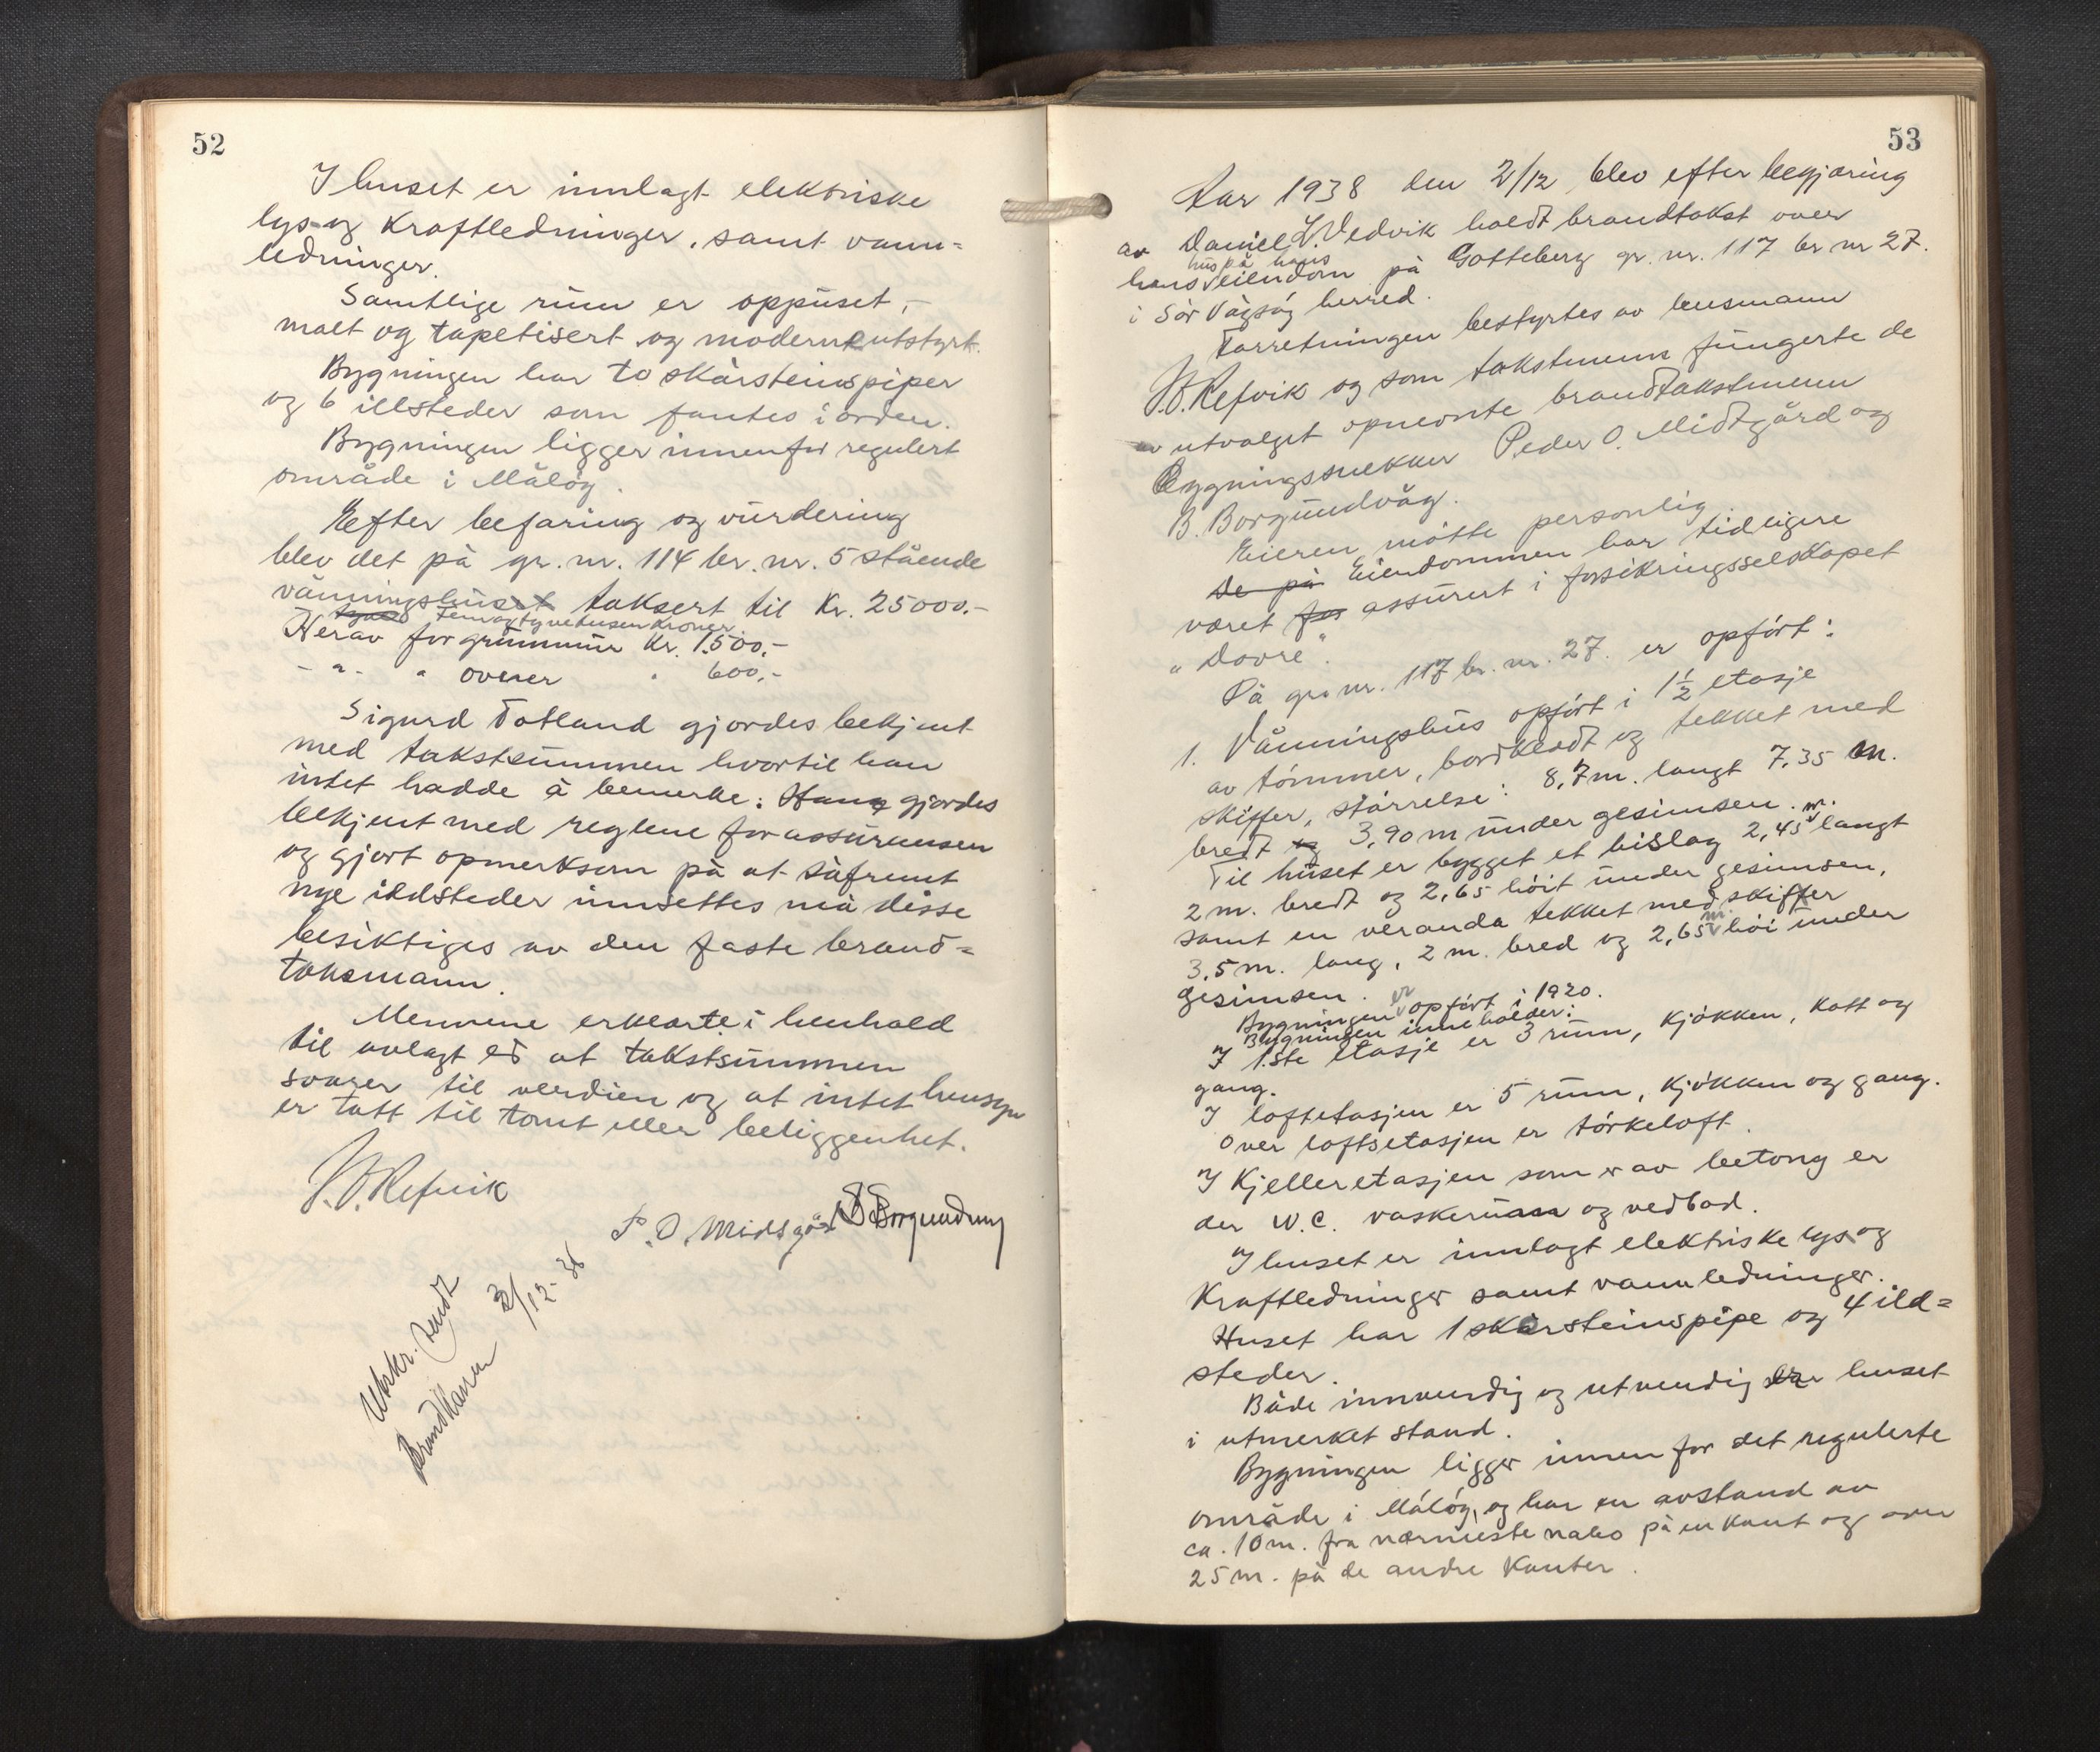 52
I huset er innlagt elektriske
lys og Kraftledninger, samt vann=
ledninger.
Samtlige rum er oppuset,
malt og tapetisert og moderne utstyrt.
Bygningen har to skårsteinspiper
og 6 illsteder som fantes i orden.
Bygningen ligger innenfor regulert
område i Måløy.
Efter befaring og vurdering
blev det på gr. nr. 114 br. nr. 5 stående
våningshuset taksert til Kr. 25000.-
femogtyvetusen Kroner
Herav for grunnmur Kr. 1.500,-
- " - " ovner " 600,-
Sigurd Totland gjordes bekjent
med takstsummen hvortil han
intet hadde å bemerke. Han gjordes
bekjent med reglene for assuransen
og gjort opmerksom på at såfremt
nye ildsteder innsettes må disse
besiktiges av den faste brand=
taksmann.
Mennene erklærte i henhold
til avlagt ed at takstsummen
svarer til verdien og at intet hensyn
er tatt til tomt eller beliggenhet.
J.O. Refvik
P. O. Midtgård B Borgundvåg
Utskr. sendt
Brandkassen 3/12-38
53
Aar 1938 den 2/12 blev efter begjæring
av Daniel L. Vedvik holdt brandtakst over
hus på hans
hans eiendom på Gotteberg gr. nr. 117 br nr 27.
i Sør Vågsøy herred.
Forretningen bestyrtes av lensmann
J.O. Refvik og som takstmenn fungerte de
av utvalget opnevnte brandtakstmenn
Bygningssnekker Peder O. Midtgård og
B. Borgundvåg.
Eieren møtte personlig.
De på Eiendommen har tidligere
været for assurert i forsikringsselskapet
"Dovre".
På gr. nr. 117 br. nr. 27. er opført:
1. Våningshus opført i 1½ etasje
av tømmer, bordkledt og tekket med
skiffer, størrelse: 8,7 m. langt 7,35 m.
bredt og 3,90 m under gesimsen.
Til huset er bygget et bislag 2,45 m. langt
2 m. bredt og 2,65 høit under gesimsen,
samt en veranda tekket med skiffer
3,5 m. lang, 2 m. bred og 2,65 m. høi under
gesimsen.
Bygningen er opført i 1920.
Bygningen inneholder:
I 1.ste etasje er 3 rum, kjøkken, kott og
gang.
I loftetasjen er 5 rum, kjøkken og gang.
Over loftsetasjen er tørkeloft.
I Kjelleretasjen som er av betong er
der W.C. vaskerum og vedbod.
I huset er innlagt elektriske lys og
Kraftledninger samt vannledninger.
Huset har 1 skårsteinspipe og 4 ild=
steder.
Både innvendig og utvendig er huset
i utmerket stand.
Bygningen ligger innen for det regulerte
område i Måløy, og har en avstand av
ca. 10 m. fra nærmeste nabo på en kant og over
25 m. på de andre Kanter.